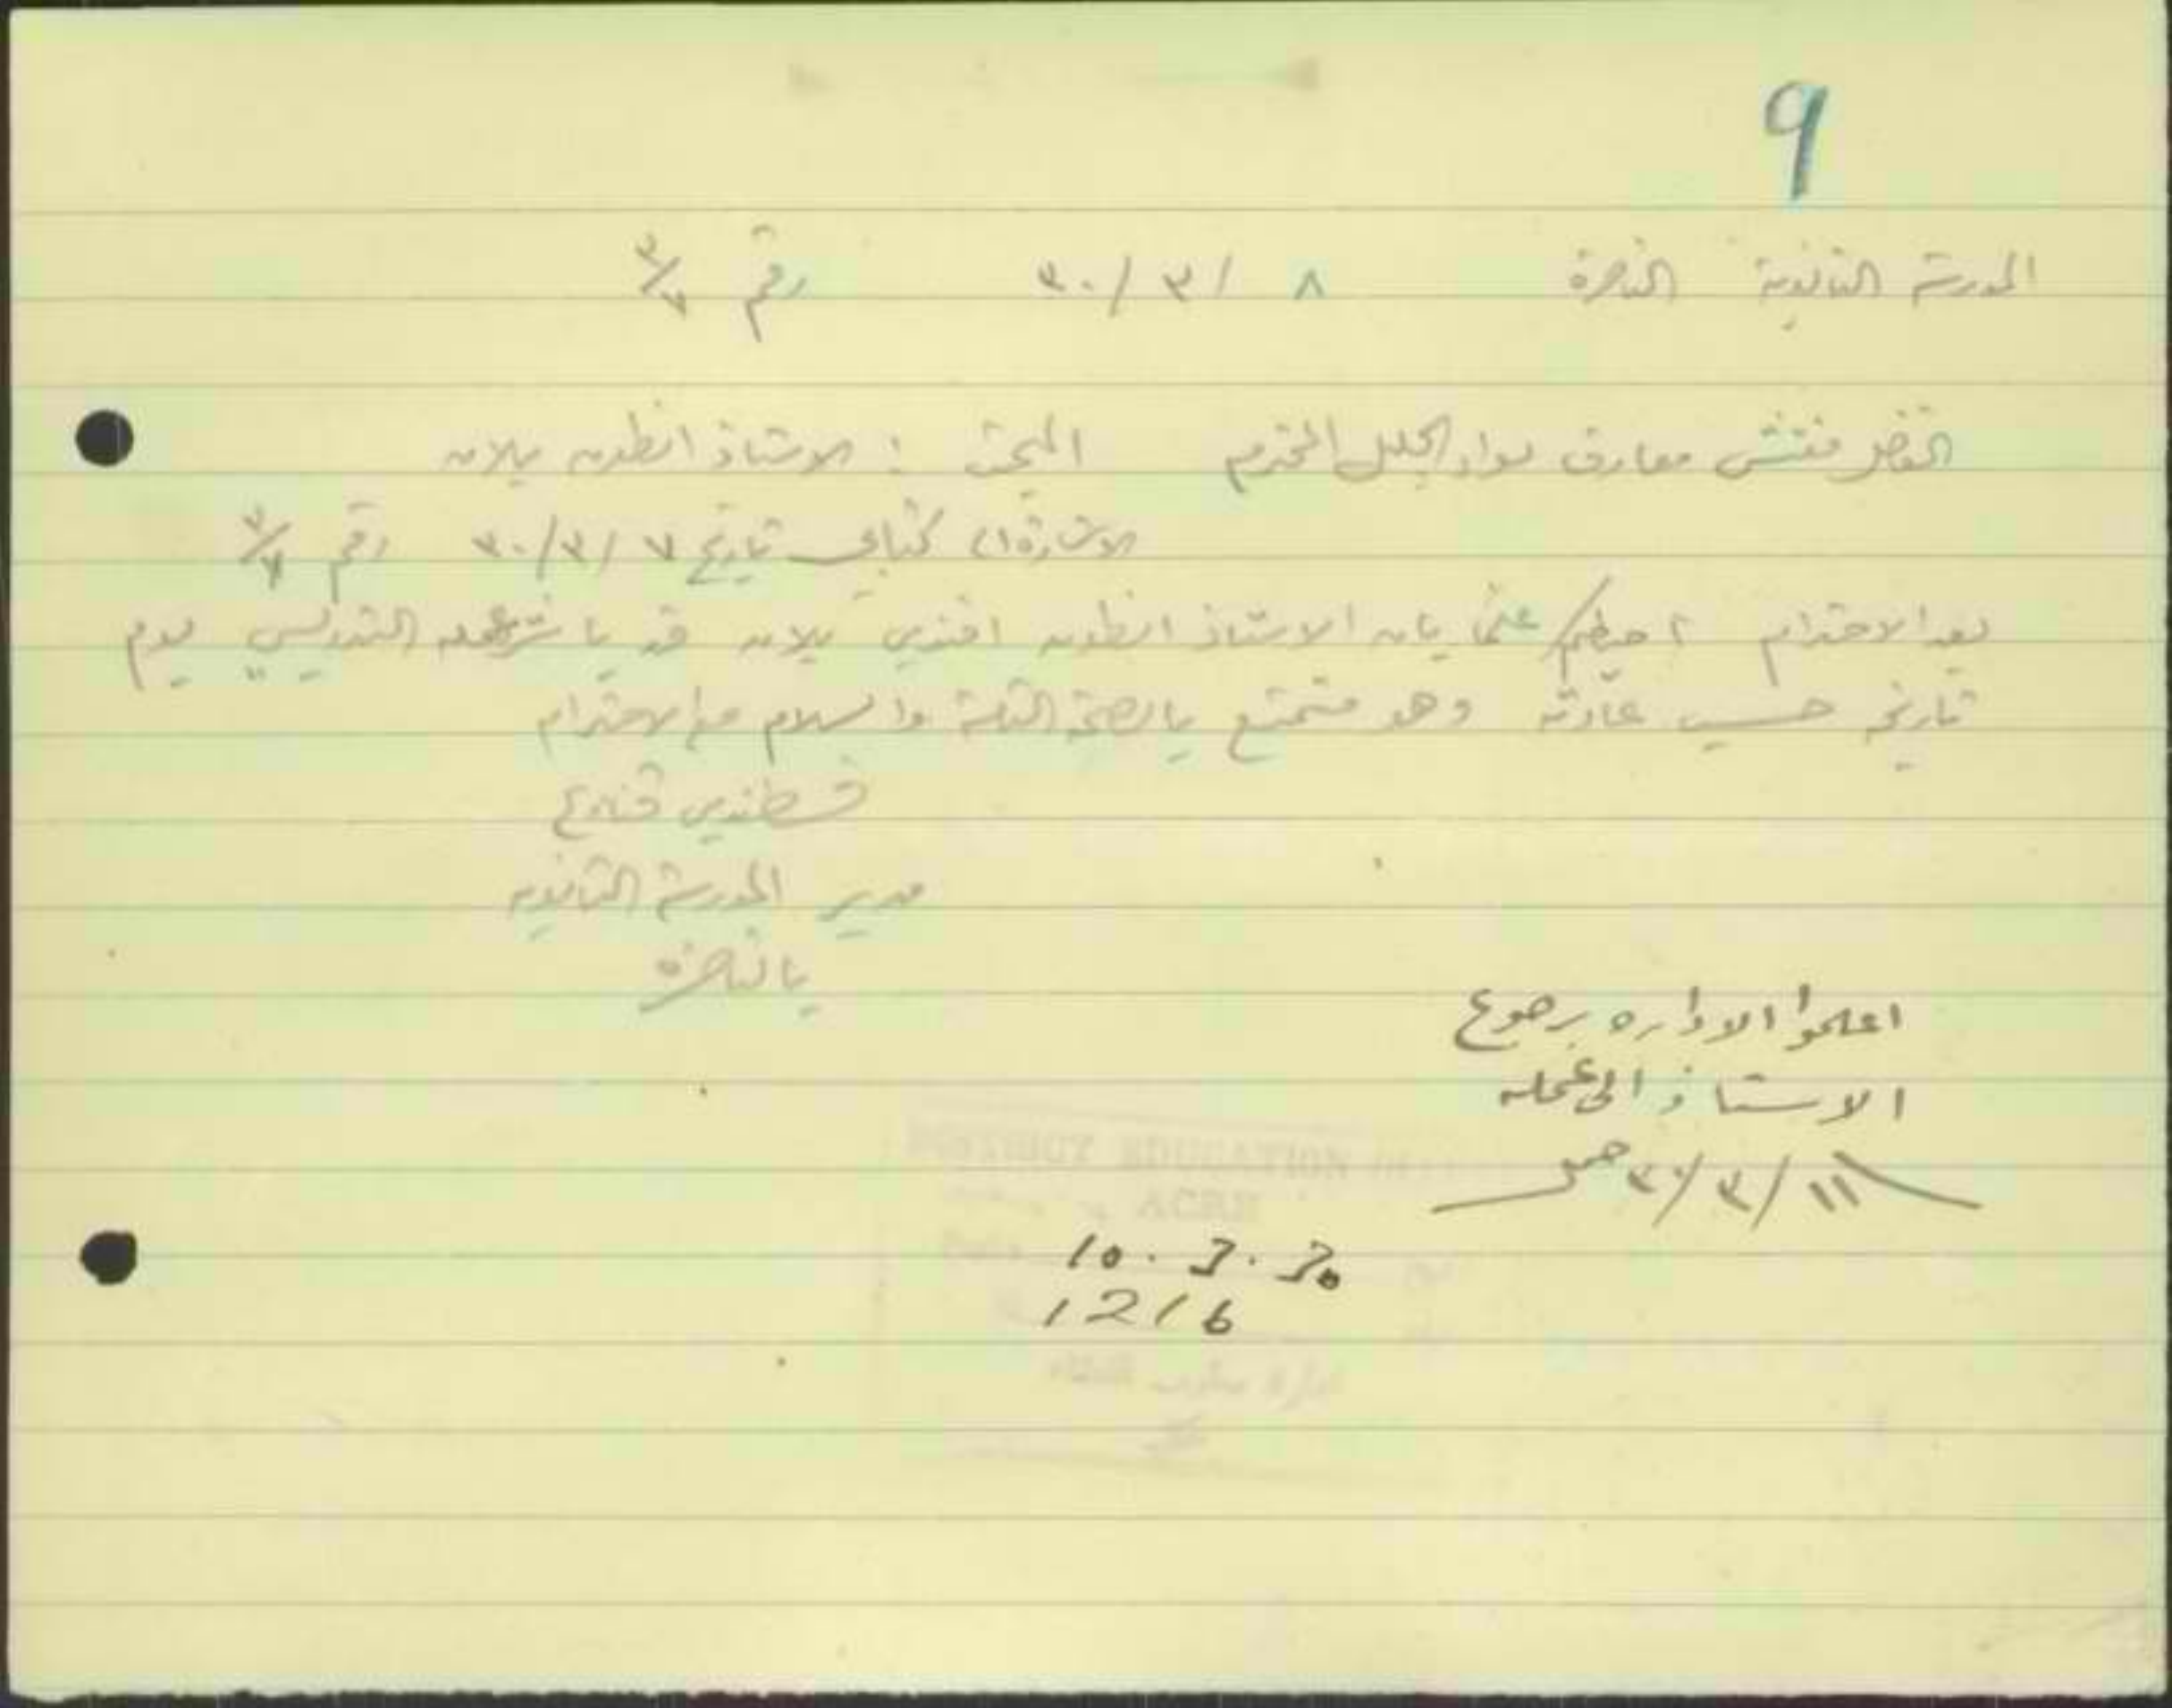 9
المدرسة الثانوية الناصرة ٨ /٣ /٣٠ رقم ٣/٧
مفتش معارف لواء الجليل المحترم البحث : الاستاذ انطون بلان
الاشارة ) كتابي تاريخ ٧ /٣ /٣٠ رقم ٣/٧
بعد الاحترام احيطكم علما بان الاستاذ انطون افندي بلان قد باشر عمله التدريسي يوم
تاريخه حسب عادته وهو متمتع بالصحة التامة والسلام مع الاحترام
قسطندي قنازع
مدير المدرسة الثانويه
بالناصره
اعلموا الاداره برجوع
الاستاذ الى عمله
١١/٣/٣٠
DISTRICT EDUCATION
ACRE
10.3.30
1216